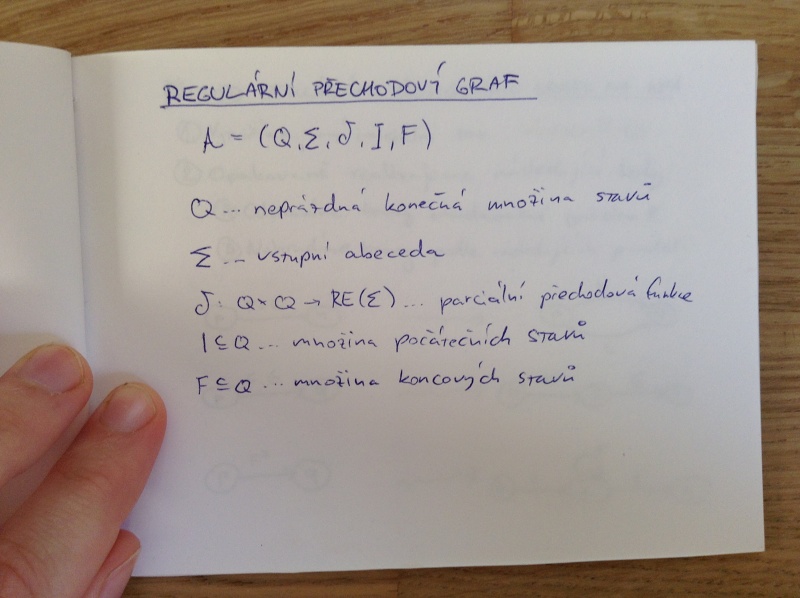 REGULÁRNÍ PŘECHODOVÝ GRAF
A = (Q, Σ, δ, I, F)
Q ... neprázdná konečná množina stavů
Σ ... vstupní abeceda
δ: Q × Q → RE(Σ) ... parciální přechodová funkce
I ⊆ Q ... množina počátečních stavů
F ⊆ Q ... množina koncových stavů